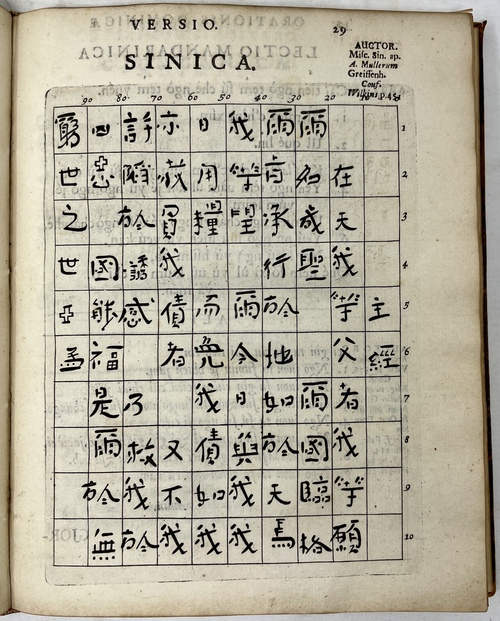 VERSIO.
29
SINICA.
AUCTOR.
Misc. Sin. ap.
A. Mullerum
Greiffenh.
Conf.
Wilkins. p. 451
90 80 70 60 50 40 30 20
1
2
3
4
5
6
7
8
9
10
主經
在天我等父者我等願
爾名成聖爾國臨格
爾旨承行於地如於天焉
我等望爾今日與我我
日用糧而免我債如我
亦赦負我債者又不我
許陷於誘感乃救我於
凶惡國能福是爾於無
窮世之世亞孟